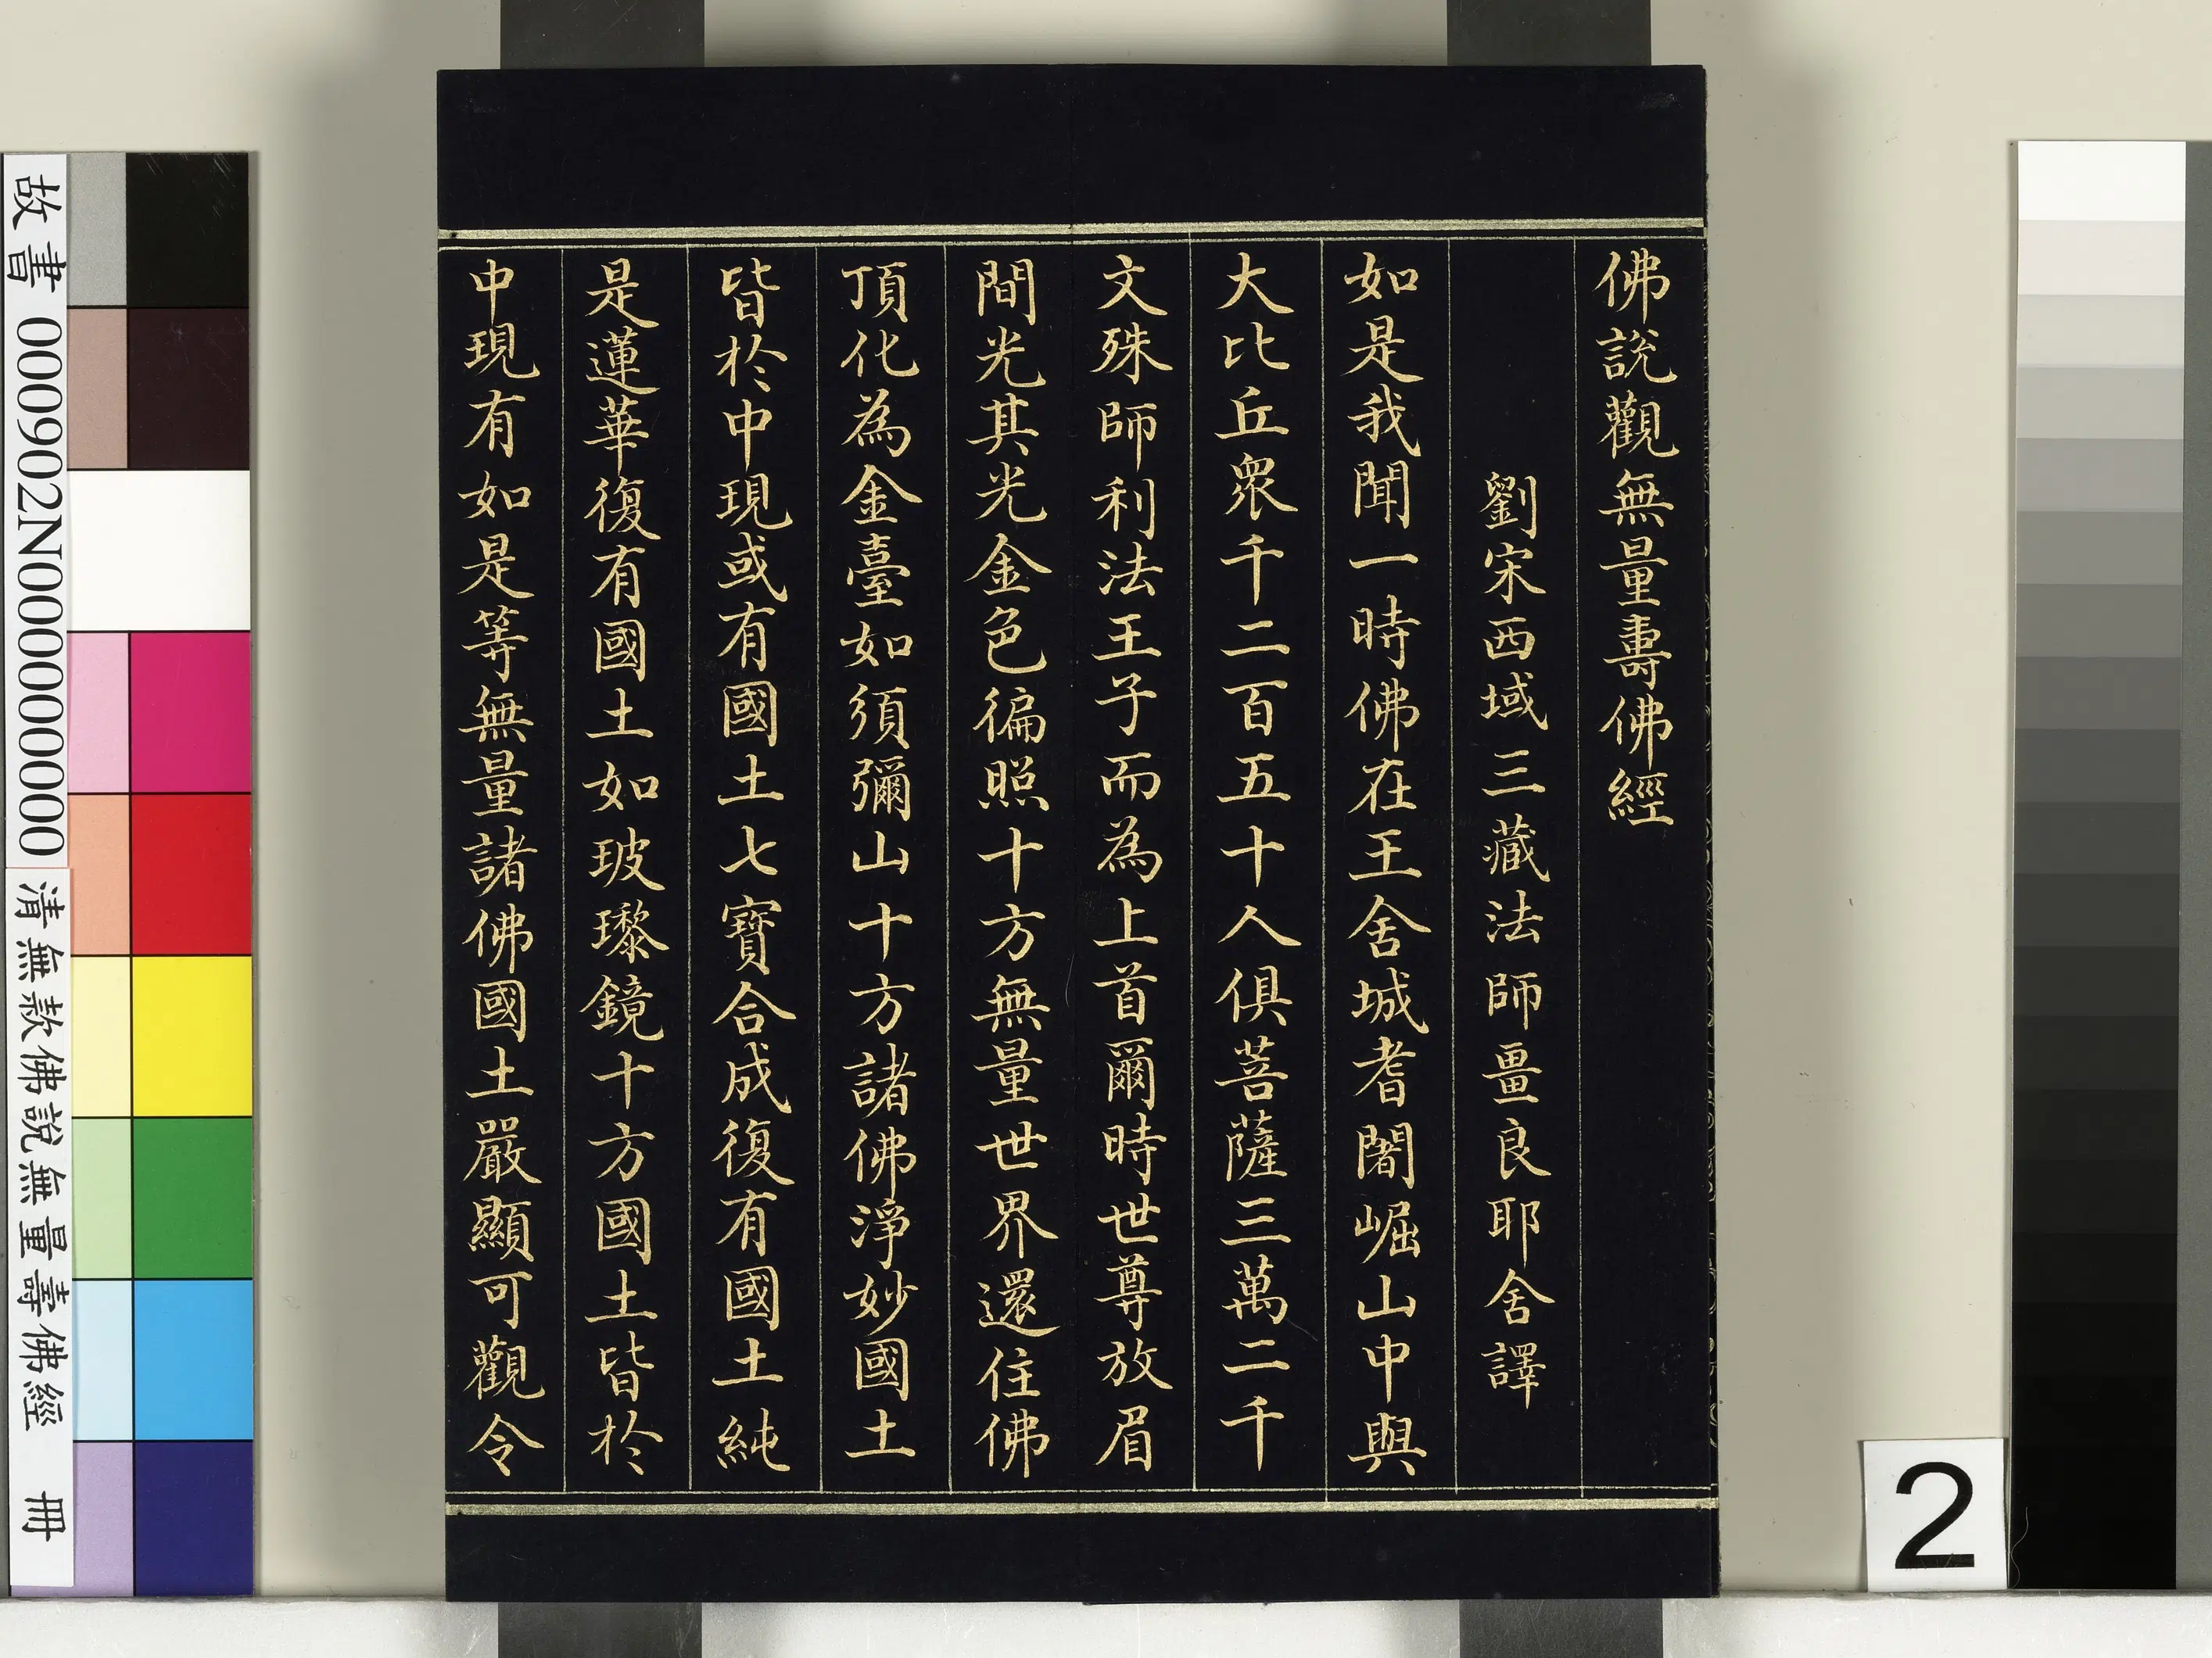 佛說觀無量壽佛經
劉宋西域三藏法師畺良耶舍譯
如是我聞一時佛在王舍城耆闍崛山中與
大比丘眾千二百五十人俱菩薩三萬二千
文殊師利法王子而為上首爾時世尊放眉
間光其光金色徧照十方無量世界還住佛
頂化為金臺如須彌山十方諸佛淨妙國土
皆於中現或有國土七寶合成復有國土純
是蓮華復有國土如玻瓈鏡十方國土皆於
中現有如是等無量諸佛國土嚴顯可觀令
故書 000902N000000000
清無款佛說無量壽佛經 冊
2